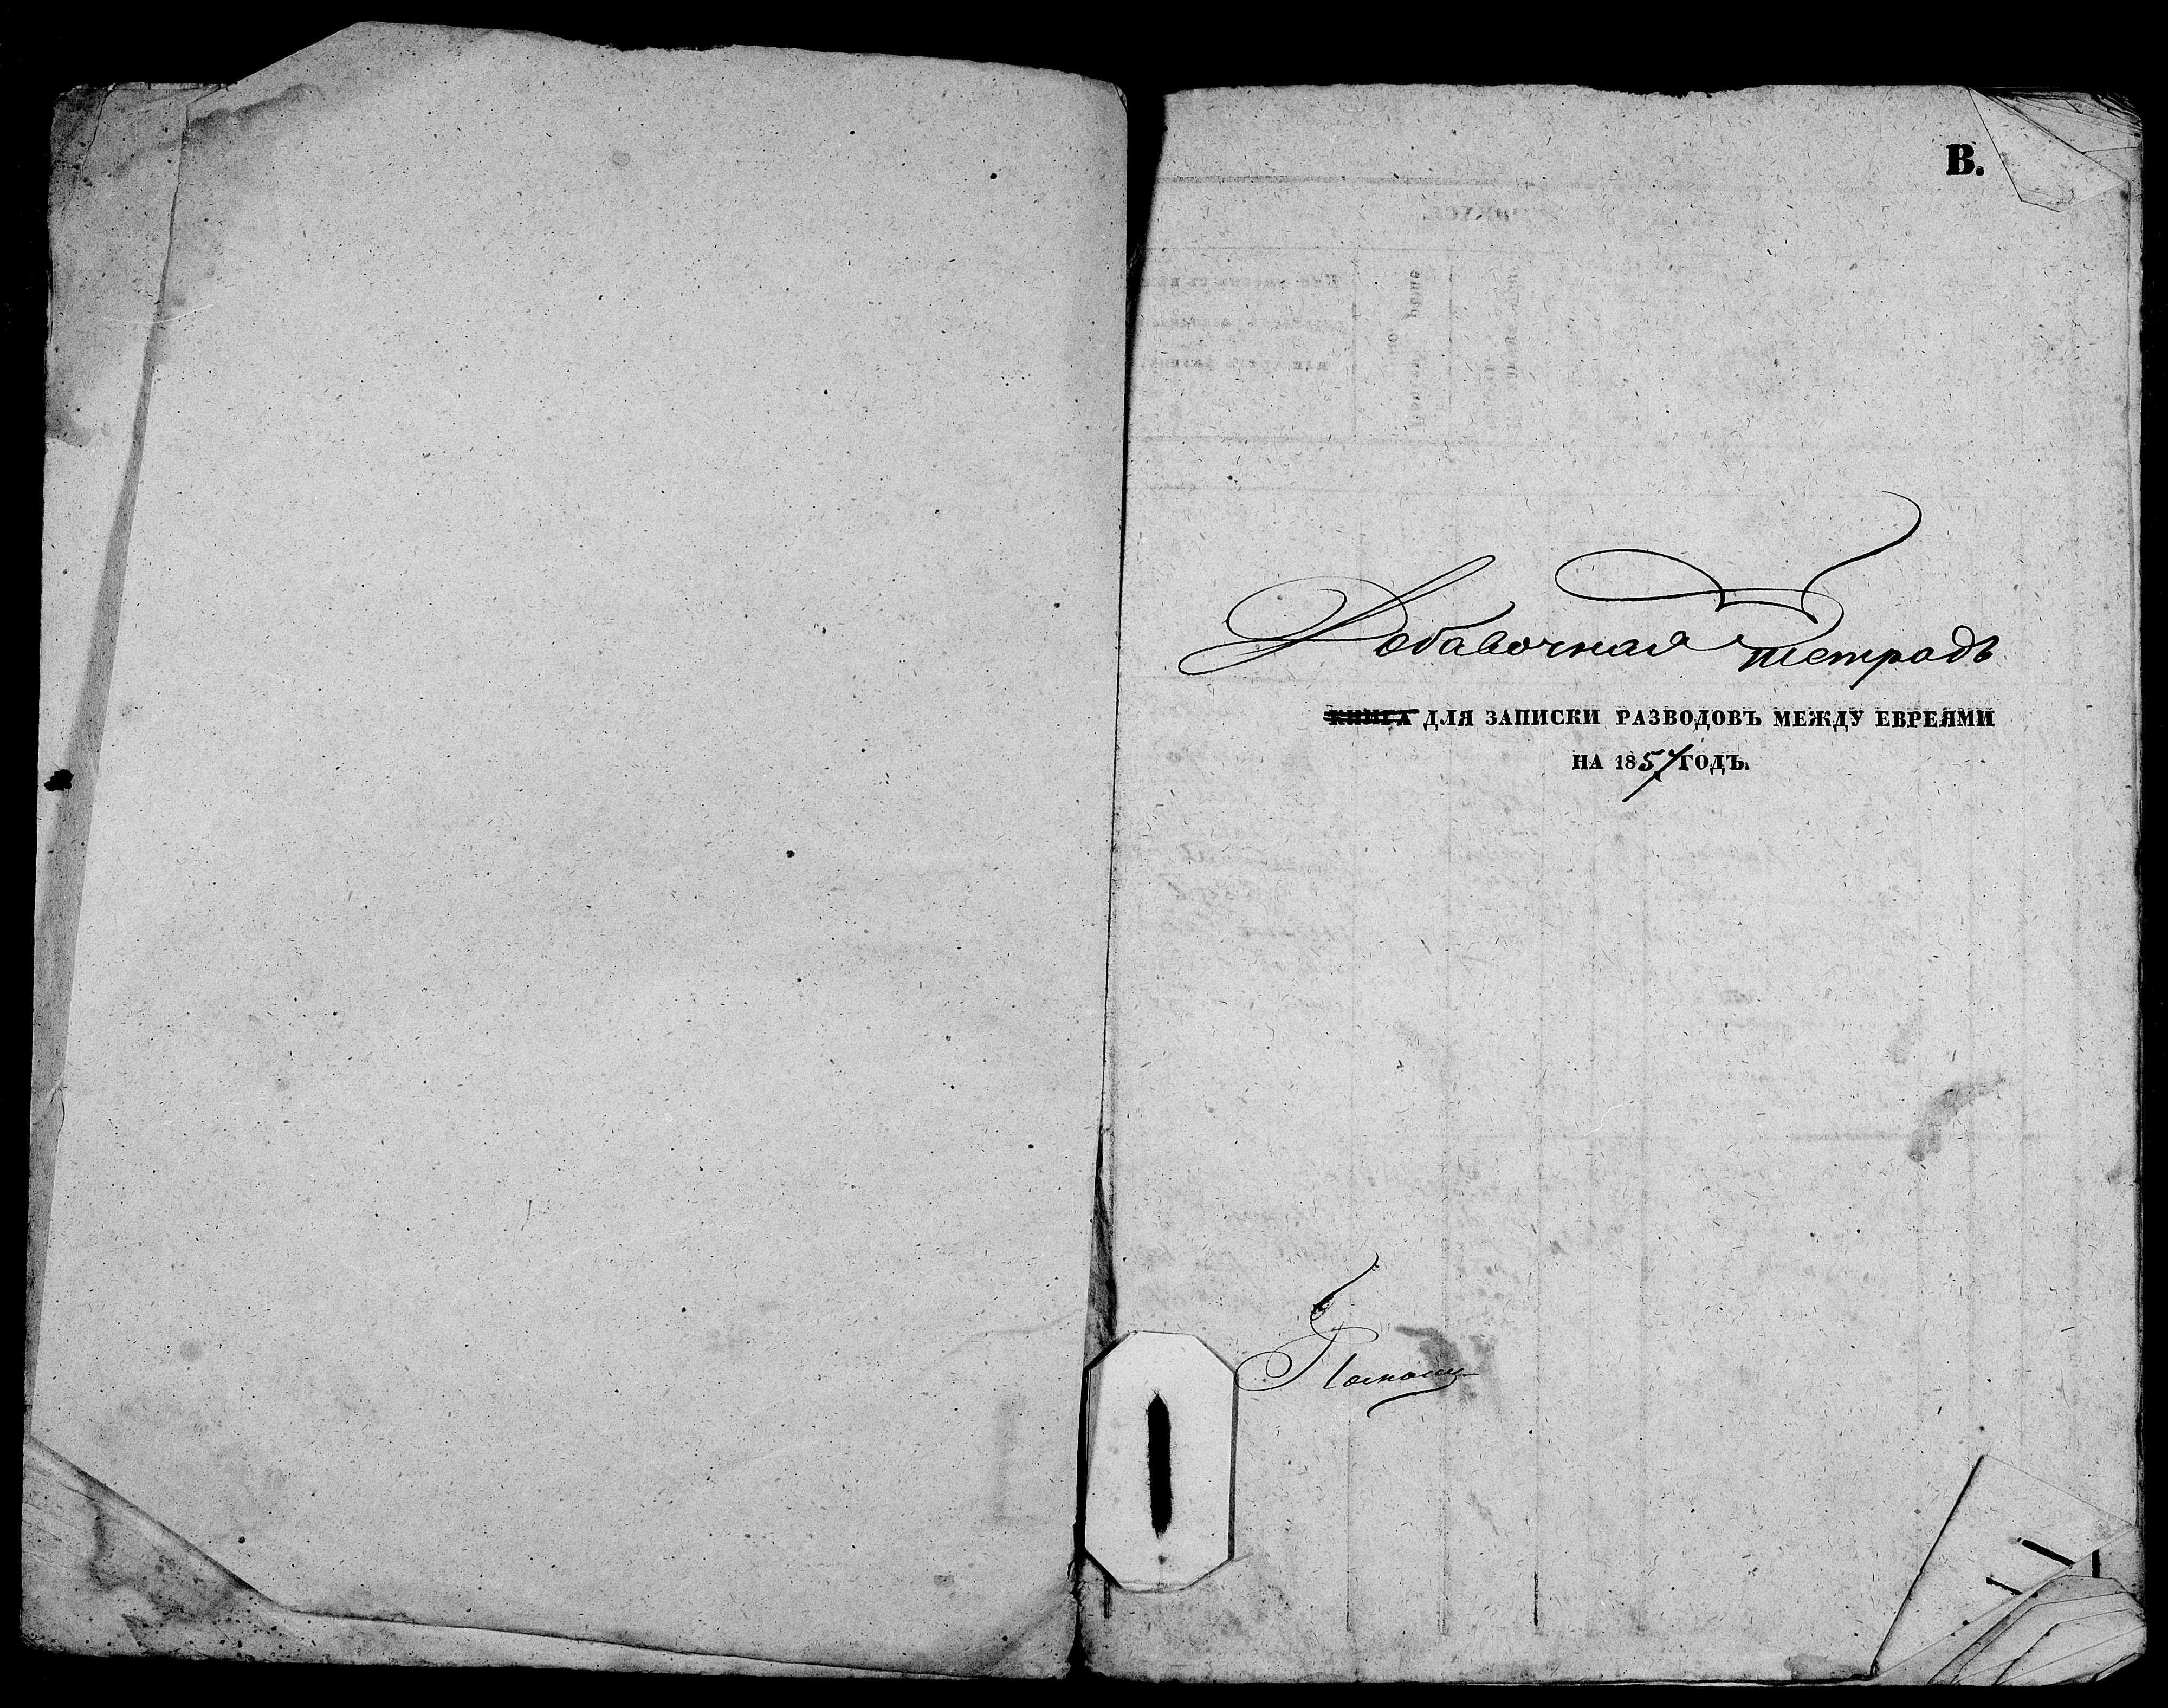 В.
Добавочная тетрадь
КНИГА ДЛЯ ЗАПИСКИ РАЗВОДОВЪ МЕЖДУ ЕВРЕЯМИ
НА 1857 ГОДЪ.